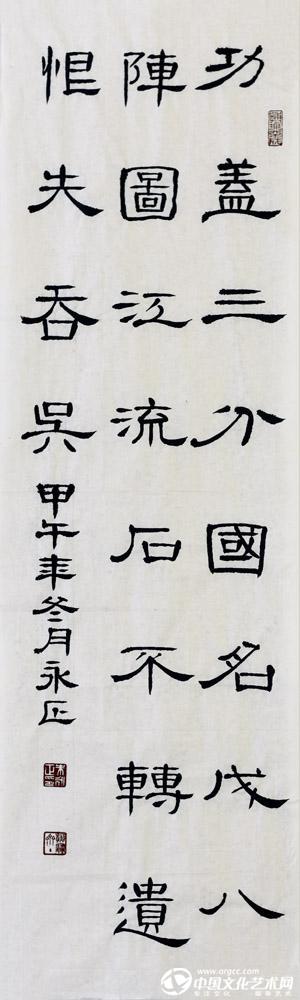 功蓋三分國名成八
陣圖江流石不轉遺
恨失吞吳
甲午年冬月永正
www.orgcc.com
中国文化艺术网